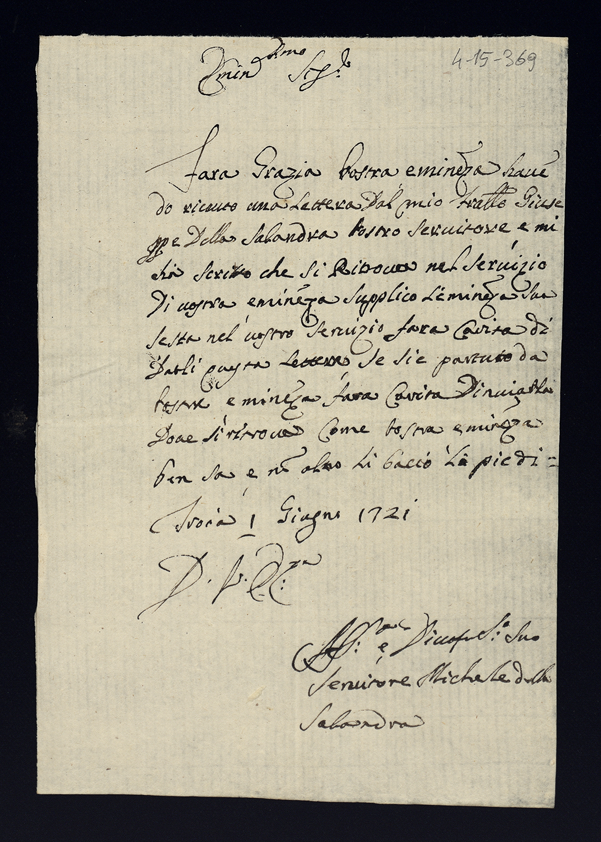 4-15-369
Emin.mo Rmo Sig.r
Fara Grazia Vostra eminẽza haue
do riceuto una Lettera Dal mio fratto Giuse
ppe Della Salandra Vostro Seruitore e mi
hà Scritto che Si Ritroua nel Seruizio
Di vostra eminẽza Supplico L'eminẽza Sua
Se sta nel vostro Seruizio fara Carita di
Darli questa Lettera Se Si è partuto da
Vostra eminẽza fara Carita D'inuiarla
Doue Si ritroua Come Vostra eminẽza
ben Sa e nõ altro Li bacio Li piedi=
1 Giugno 1721
D. V. E.za
e Diuo Suo
Seruitore Michele della
Salandra